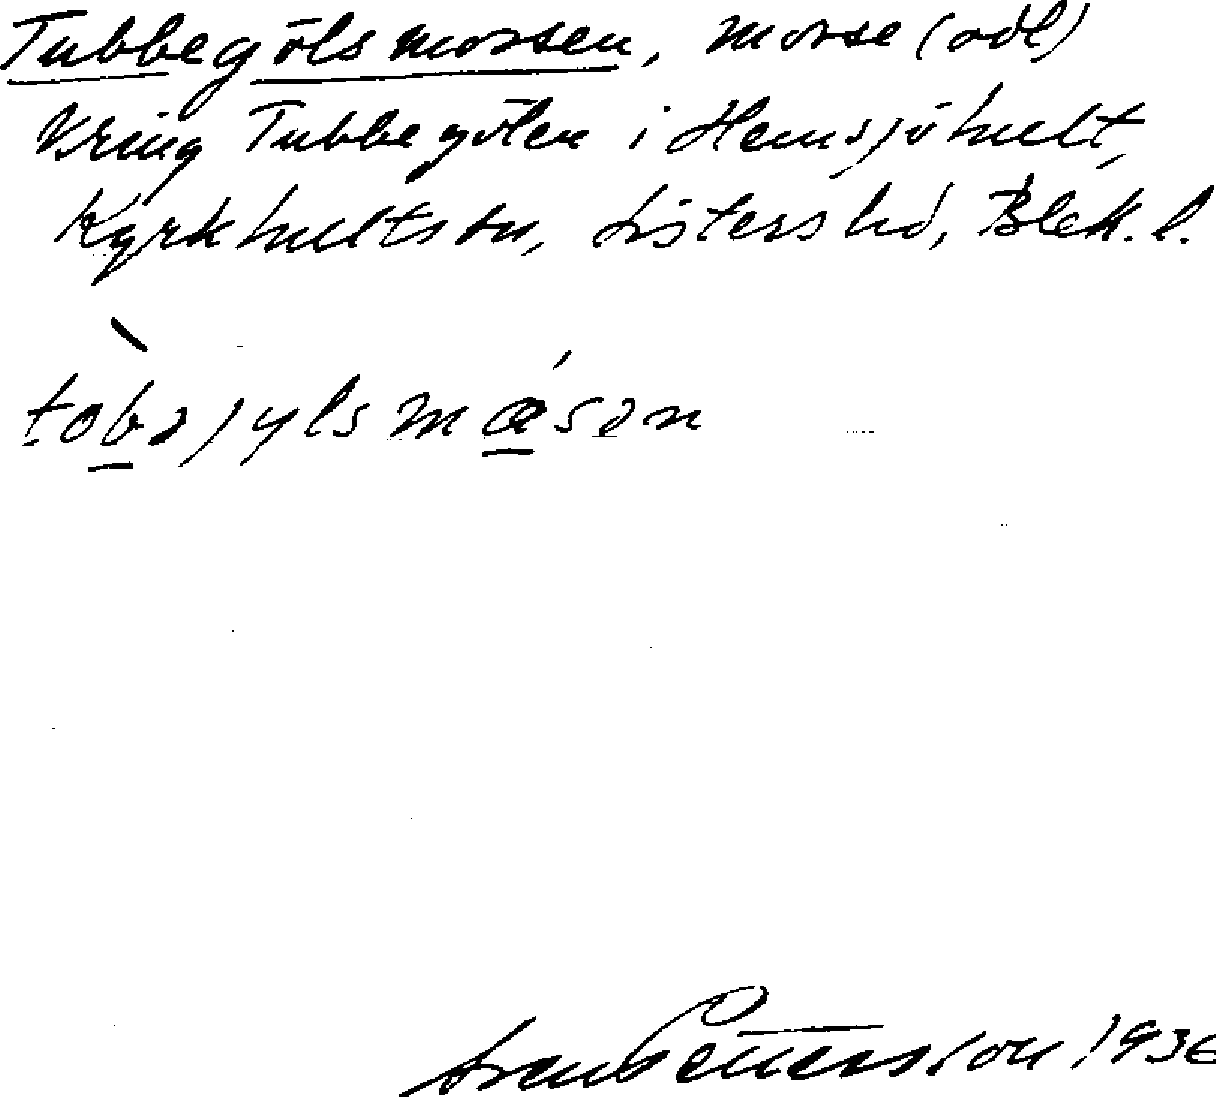 Tubbegölsmossen, mosse (odl)
kring Tubbegölen i Hemsjöhult,
Kyrkhults sn, Listers hd, Blek. l.
tobəjylsmåsən
Sven Pettersson 1936